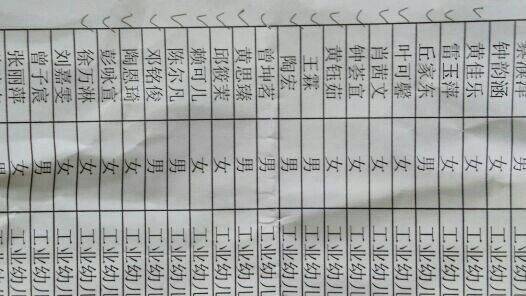 钟韵涵 女 工业幼儿
黄佳乐 女 工业幼儿
雷玉萍 女 工业幼儿
丘家东 男 工业幼儿
叶可馨 女 工业幼儿
肖茜文 女 工业幼儿
钟茗宜 女 工业幼儿
黄钰茹 女 工业幼儿
王霖 男 工业幼儿
陶宏 男 工业幼儿
曾坤茗 男 工业幼儿
黄思臻 男 工业幼儿
邱筱茉 女 工业幼儿
赖可儿 女 工业幼儿
陈尔凡 男 工业幼儿
邓铭俊 男 工业幼儿
陶恩琦 女 工业幼儿
彭咏宣 女 工业幼儿
徐万淋 女 工业幼儿
刘嘉雯 女 工业幼儿
曾子宸 男 工业幼儿
张丽萍 女 工业幼儿